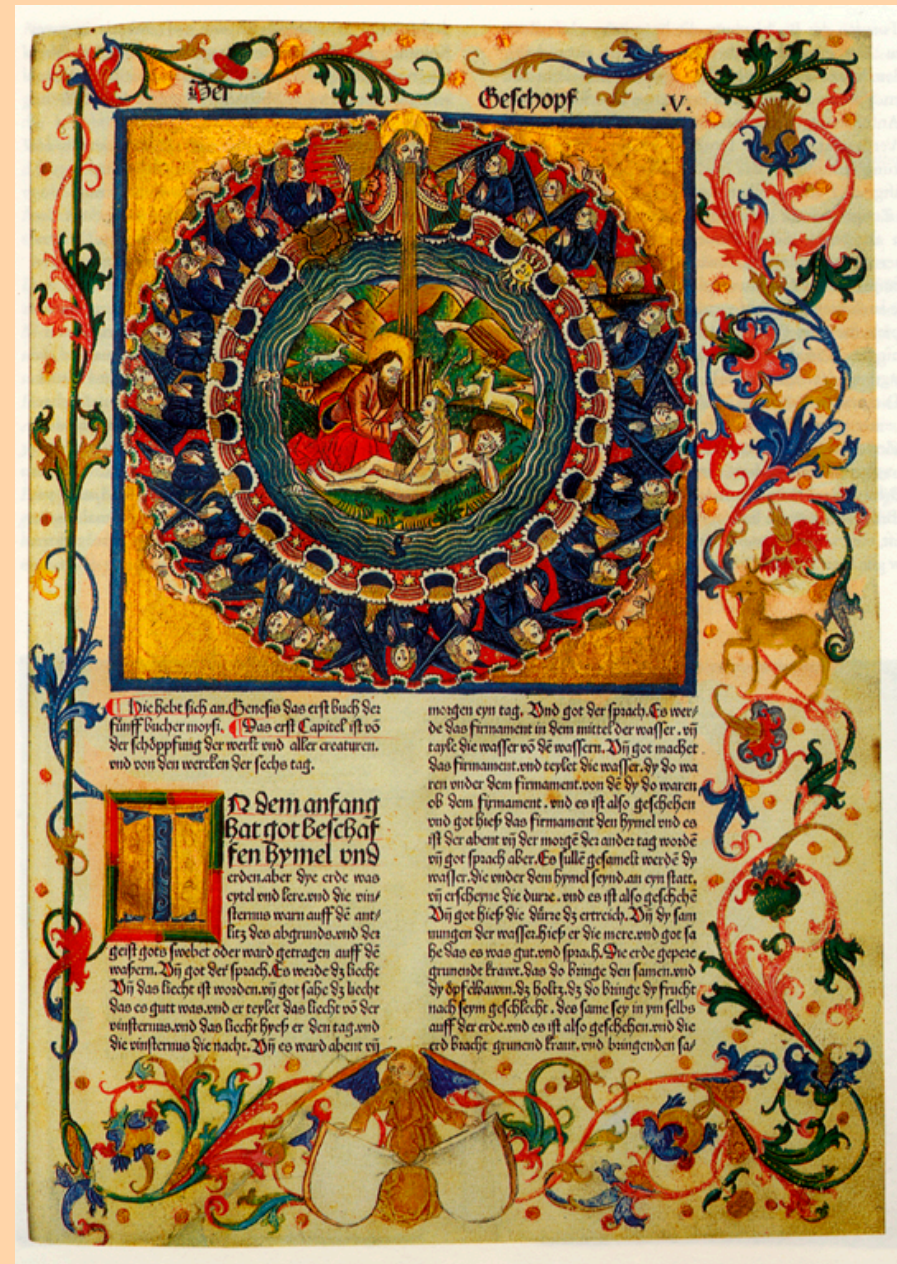 Der Geschopf .V.
Hie hebt sich an. Genesis das erst buch der
fünff bucher moysi. Das erst Capitel ist vō
der schöppfung der werlt vnd aller creaturen.
vnd von den wercken der sechs tag.
IN dem anfang
hat got beschaf
fen hymel vnd
erden. aber dye erde was
eytel vnd lere. vnd die vin⸗
sternus warn auff dē ant⸗
litz des abgrunds. vnd der
geist gots swebet oder ward getragen auff dē
wassern. Vn̄ got der sprach. Es werde dz liecht
Vn̄ das liecht ist worden. vn̄ got sahe dz liecht
das es gutt was. vnd er teylet das liecht vō der
vinsternus. vnd das liecht hyeß er den tag. vnd
die vinsternus die nacht. Vn̄ es ward abent vn̄
morgen eyn tag. Vnd got der sprach. Es wer⸗
de das firmament in dem mittel der wasser. vn̄
tayle die wasser vō dē wassern. Vn̄ got machet
das firmament. vnd teylet die wasser. dy do wa
ren vnder dem firmament. von dē dy do waren
ob dem firmament. vnd es ist also geschehen
vnd got hieß das firmament den hymel vnd es
ist der abent vn̄ der morgē der ander tag wordē
vn̄ got sprach aber. Es sullē gesamelt werdē dy
wasser. die vnder dem hymel seynd. an eyn statt.
vn̄ erscheyne die durre. vnd es ist also geschehē
Vn̄ got hieß die dürre dz ertreich. Vn̄ dy sam
nungen der wasser. hieß er die mere. vnd got sa
he das es was gut. vnd sprach. Die erde gepere
grunende krawt. das do bringe den samen. vnd
dy öpfelbawm. dz holtz. dz do bringe dy frucht
nach seym geschlecht. des same sey in ym selbs
auff der erde. vnd es ist also geschehen. vnd die
erd bracht grunend kraut. vnd bringenden sa⸗